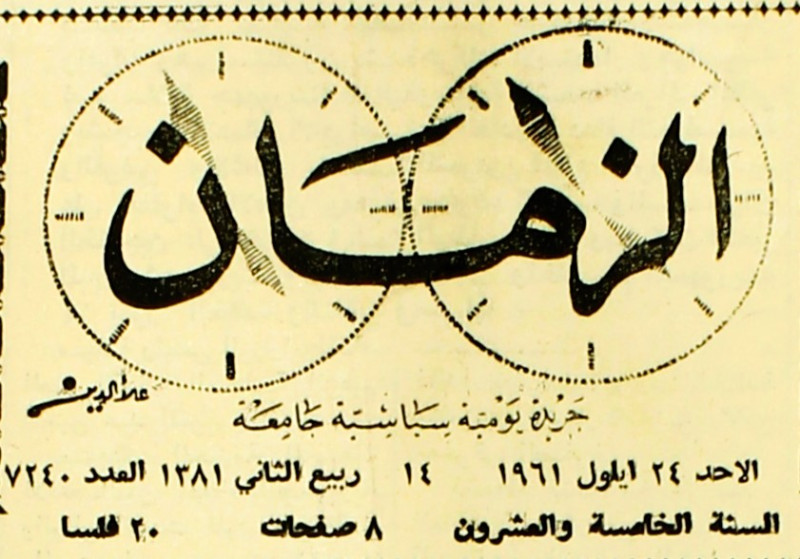 الزمان
علاء الدين
جريدة يومية سياسية جامعة
الاحد ٢٤ ايلول ١٩٦١ ١٤ ربيع الثاني ١٣٨١ العدد ٧٢٤٠
السنة الخامسة والعشرون ٨ صفحات ٢٠ فلسا